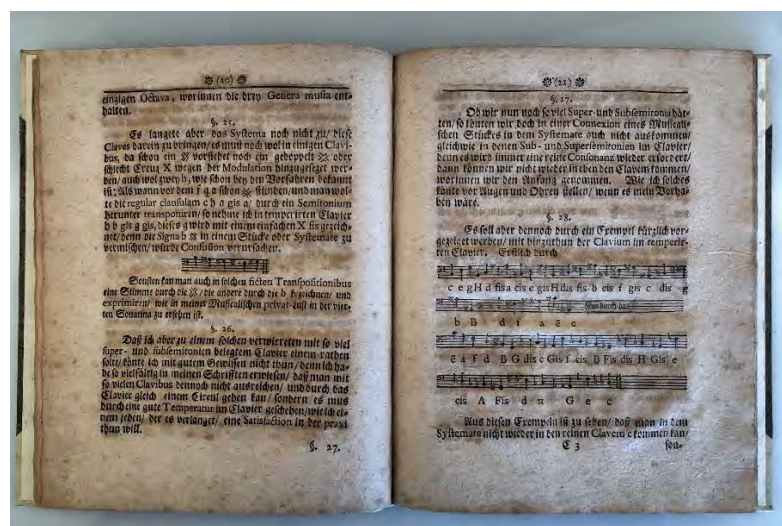 (20)
einzigen Octava, worinnen die drey Genera musica ent-
halten.
§. 25.
Es langete aber das Systema noch nicht zu/ diese
Claves darein zu bringen/ es muß noch wol in einigen Clavi-
bus, da schon ein ※ vorstehet noch ein gedoppelt ※ oder
schlecht Creutz X wegen der Modulation hinzugesetzet wer-
den/ auch wol zwey b, wie schon bey den Vorfahren bekannt
ist: Als wann vor dem f g a schon ※ stünden/ und man wol-
te die regular clausulam c h a gis a durch ein Semitonium
herunter transponiren/ so nehme ich in temperirten Clavier
h b gis g gis, dieses g wird mit einem einfachen X fis gezeich-
net/ denn die Signa b ※ in einem Stücke oder Systemate zu
vermischen/ würde Confusion verursachen.
Sonsten kan man auch in solchen ficten Transpositionibus
eine Stimme durch die ※/ die andere durch die b bezeichnen/ und
exprimiren/ wie in meiner Musicalischen privat-Lust in der vier-
ten Sonatina zu ersehen ist.
§. 26.
Daß ich aber zu einem solchen verwirreten mit so viel
super- und subsemitonien belegtem Clavier einem rathen
solte/ könte ich mit gutem Gewissen nicht thun/ denn ich ha-
be so vielfältig in meinen Schrifften erwiesen/ daß man mit
so vielen Clavibus dennoch nicht ausreichen/ und durch das
Clavier gleich einem Circul gehen kan/ sondern es mus
durch eine gute Temperatur im Clavier geschehen/ wie ich ei-
nem jeden/ der es verlanget/ eine Satisfaction in der praxi
thun will.
§. 27.
(21)
§. 27.
Ob wir nun noch so viel Super- und Subsemitonia hät-
ten/ so könten wir doch in einer Connexion eines Musicali-
schen Stückes in dem Systemate auch nicht auskommen/
gleichwie in denen Sub- und Supersemitonien im Clavier/
denn es wird immer eine reine Consonanz wieder erfordert/
dann können wir nicht wieder in eben den Clavem kommen/
worinnen wir den Anfang genommen. Wie ich solches
könte vor Augen und Ohren stellen/ wenn es mein Vorha-
ben wäre.
§. 28.
Es soll aber dennoch durch ein Exempel kürzlich vor-
gezeiget werden/ mit hinzuthun der Clavium im temperir-
ten Clavier. Erstlich durch
c e g H d fis a cis e gis H dis fis b cis f gis c dis g
Nun durch das b
b B d f a c e
c a f d B G dis c Gis f cis B Fis dis H Gis e
cis A Fis d n G e c
Aus diesen Exempeln ist zu sehen/ daß man in dem
Systemate nicht wieder in den reinen Clavem c kommen kan/
C 3
son-